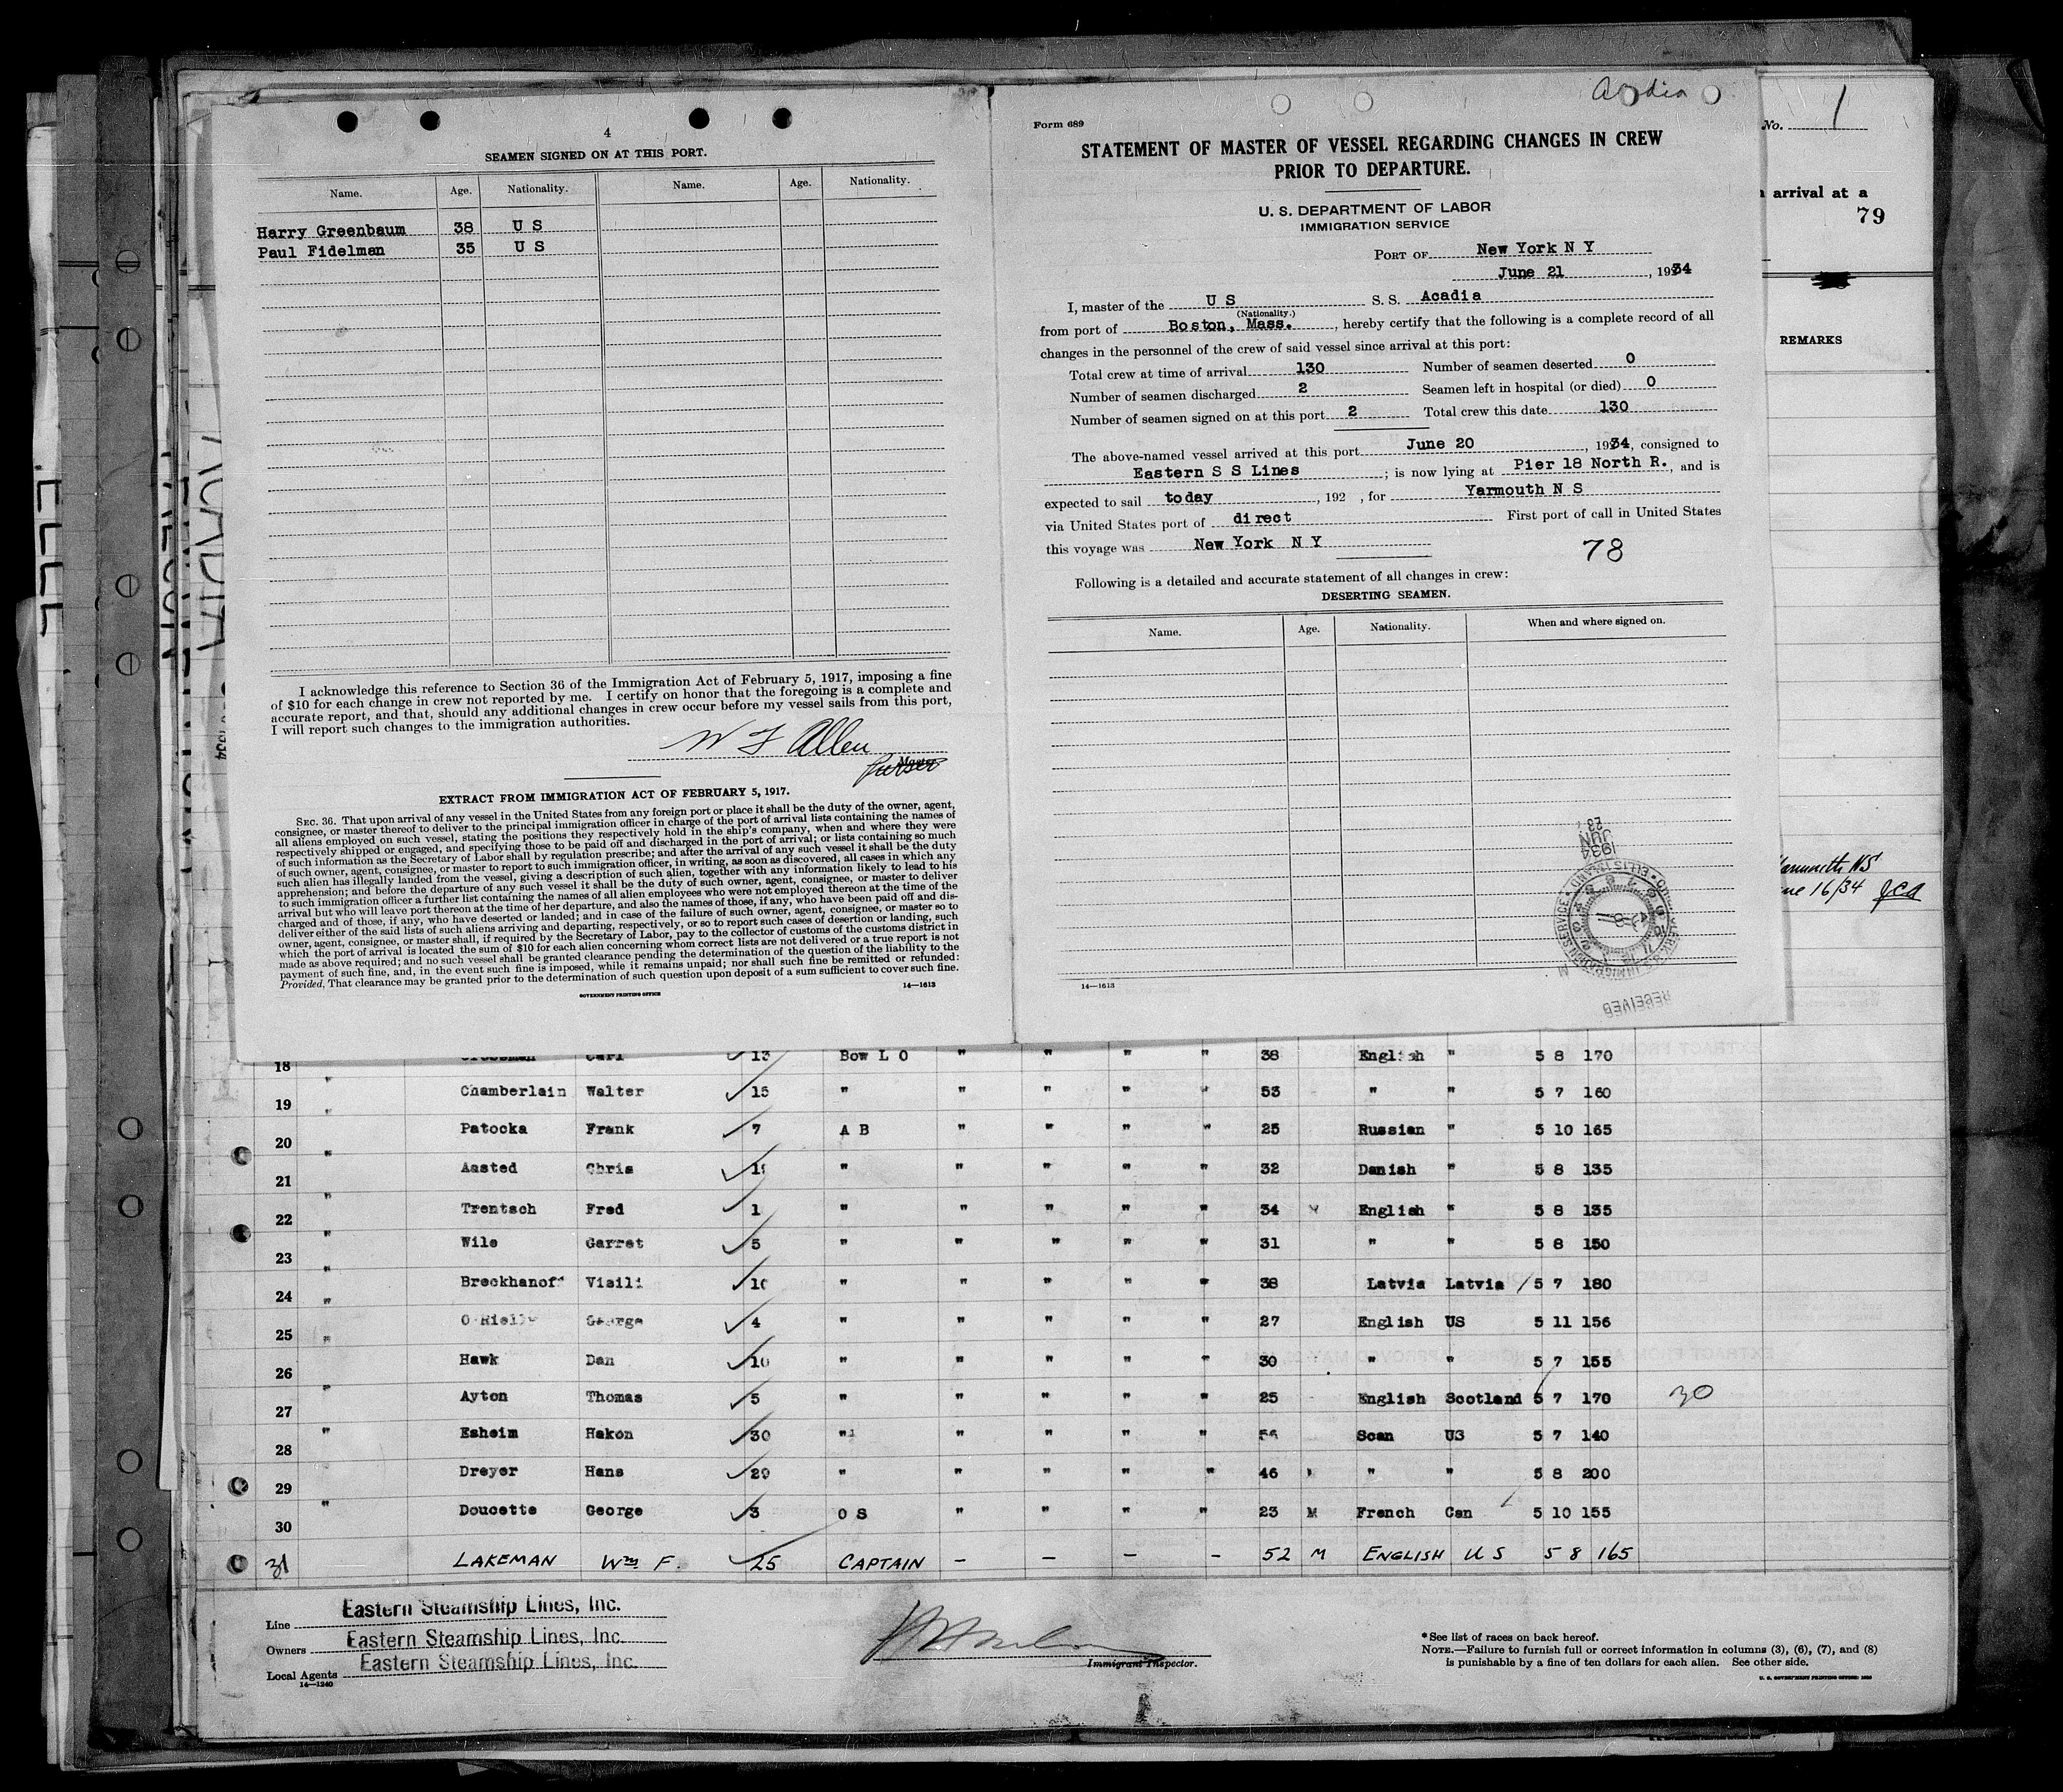 4
SEAMEN SIGNED ON AT THIS PORT.
Name. Age. Nationality. Name. Age. Nationality.
Harry Greenbaum 38 U S
Paul Fidelman 35 U S
I acknowledge this reference to Section 36 of the Immigration Act of February 5, 1917, imposing a fine
of $10 for each change in crew not reported by me. I certify on honor that the foregoing is a complete and
accurate report, and that, should any additional changes in crew occur before my vessel sails from this port,
I will report such changes to the immigration authorities.
W F Allen
Master
Purser
EXTRACT FROM IMMIGRATION ACT OF FEBRUARY 5, 1917.
SEC. 36. That upon arrival of any vessel in the United States from any foreign port or place it shall be the duty of the owner, agent,
consignee, or master thereof to deliver to the principal immigration officer in charge of the port of arrival lists containing the names of
all aliens employed on such vessel, stating the positions they respectively hold in the ship's company, when and where they were
respectively shipped or engaged, and specifying those to be paid off and discharged in the port of arrival; or lists containing so much
of such information as the Secretary of Labor shall by regulation prescribe; and after the arrival of any such vessel it shall be the duty
of such owner, agent, consignee, or master to report to such immigration officer, in writing, as soon as discovered, all cases in which any
such alien has illegally landed from the vessel, giving a description of such alien, together with any information likely to lead to his
apprehension; and before the departure of any such vessel it shall be the duty of such owner, agent, consignee, or master to deliver
to such immigration officer a further list containing the names of all alien employees who were not employed thereon at the time of the
arrival but who will leave port thereon at the time of her departure, and also the names of those, if any, who have been paid off and dis-
charged and of those, if any, who have deserted or landed; and in case of the failure of such owner, agent, consignee, or master so to
deliver either of the said lists of such aliens arriving and departing, respectively, or so to report such cases of desertion or landing, such
owner, agent, consignee, or master shall, if required by the Secretary of Labor, pay to the collector of customs of the customs district in
which the port of arrival is located the sum of $10 for each alien concerning whom correct lists are not delivered or a true report is not
made as above required; and no such vessel shall be granted clearance pending the determination of the question of the liability to the
payment of such fine, and, in the event such fine is imposed, while it remains unpaid; nor shall such fine be remitted or refunded:
Provided, That clearance may be granted prior to the determination of such question upon deposit of a sum sufficient to cover such fine.
GOVERNMENT PRINTING OFFICE 14—1613
Acadia
Form 689
STATEMENT OF MASTER OF VESSEL REGARDING CHANGES IN CREW
PRIOR TO DEPARTURE.
U. S. DEPARTMENT OF LABOR
IMMIGRATION SERVICE
PORT OF New York N Y
June 21, 1934
I, master of the U S S. S. Acadia
(Nationality.)
from port of Boston, Mass., hereby certify that the following is a complete record of all
changes in the personnel of the crew of said vessel since arrival at this port:
Total crew at time of arrival 130 Number of seamen deserted 0
Number of seamen discharged 2 Seamen left in hospital (or died) 0
Number of seamen signed on at this port 2 Total crew this date 130
The above-named vessel arrived at this port June 20, 1934, consigned to
Eastern S S Lines; is now lying at Pier 18 North R., and is
expected to sail today, 192 , for Yarmouth N S
via United States port of direct First port of call in United States
this voyage was New York N Y
78
Following is a detailed and accurate statement of all changes in crew:
DESERTING SEAMEN.
Name. Age. Nationality. When and where signed on.
1934 JUN 23
RECEIVED
14—1613
No. 1
arrival at a
79
REMARKS
Yarmouth NS
June 16/34 JCA
18 Carl 13 Bow L O " " " " 38 English " 5 8 170
19 " Chamberlain Walter 15 " " " " " 53 " " 5 7 160
20 " Patocka Frank 7 A B " " " " 25 Russian " 5 10 165
21 " Aasted Chris 19 " " " " " 32 Danish " 5 8 135
22 " Trentsch Fred 1 " " " " " 34 English " 5 8 135
23 " Wile Garret 5 " " " " " 31 " " 5 8 150
24 " Breckhanoff Visili 10 " " " " " 38 Latvia Latvia 5 7 180
25 " O Rielly George 4 " " " " " 27 English US 5 11 156
26 " Hawk Dan 10 " " " " " 30 " " 5 7 155
27 " Ayton Thomas 5 " " " " " 25 English Scotland 5 7 170 30
28 " Esheim Hakon 30 " " " " " 56 Scan US 5 7 140
29 Dreyer Hans 29 " " " " " 46 " " 5 8 200
30 " Doucette George 3 O S " " " " 23 M French Can 5 10 155
31 LAKEMAN Wm F. 25 CAPTAIN - - - - 52 M ENGLISH U S 5 8 165
Line Eastern Steamship Lines, Inc.
Owners Eastern Steamship Lines, Inc.
Local Agents Eastern Steamship Lines, Inc.
14—1240
Immigrant Inspector.
*See list of races on back hereof.
NOTE.—Failure to furnish full or correct information in columns (3), (6), (7), and (8)
is punishable by a fine of ten dollars for each alien. See other side.
U. S. GOVERNMENT PRINTING OFFICE: 1930